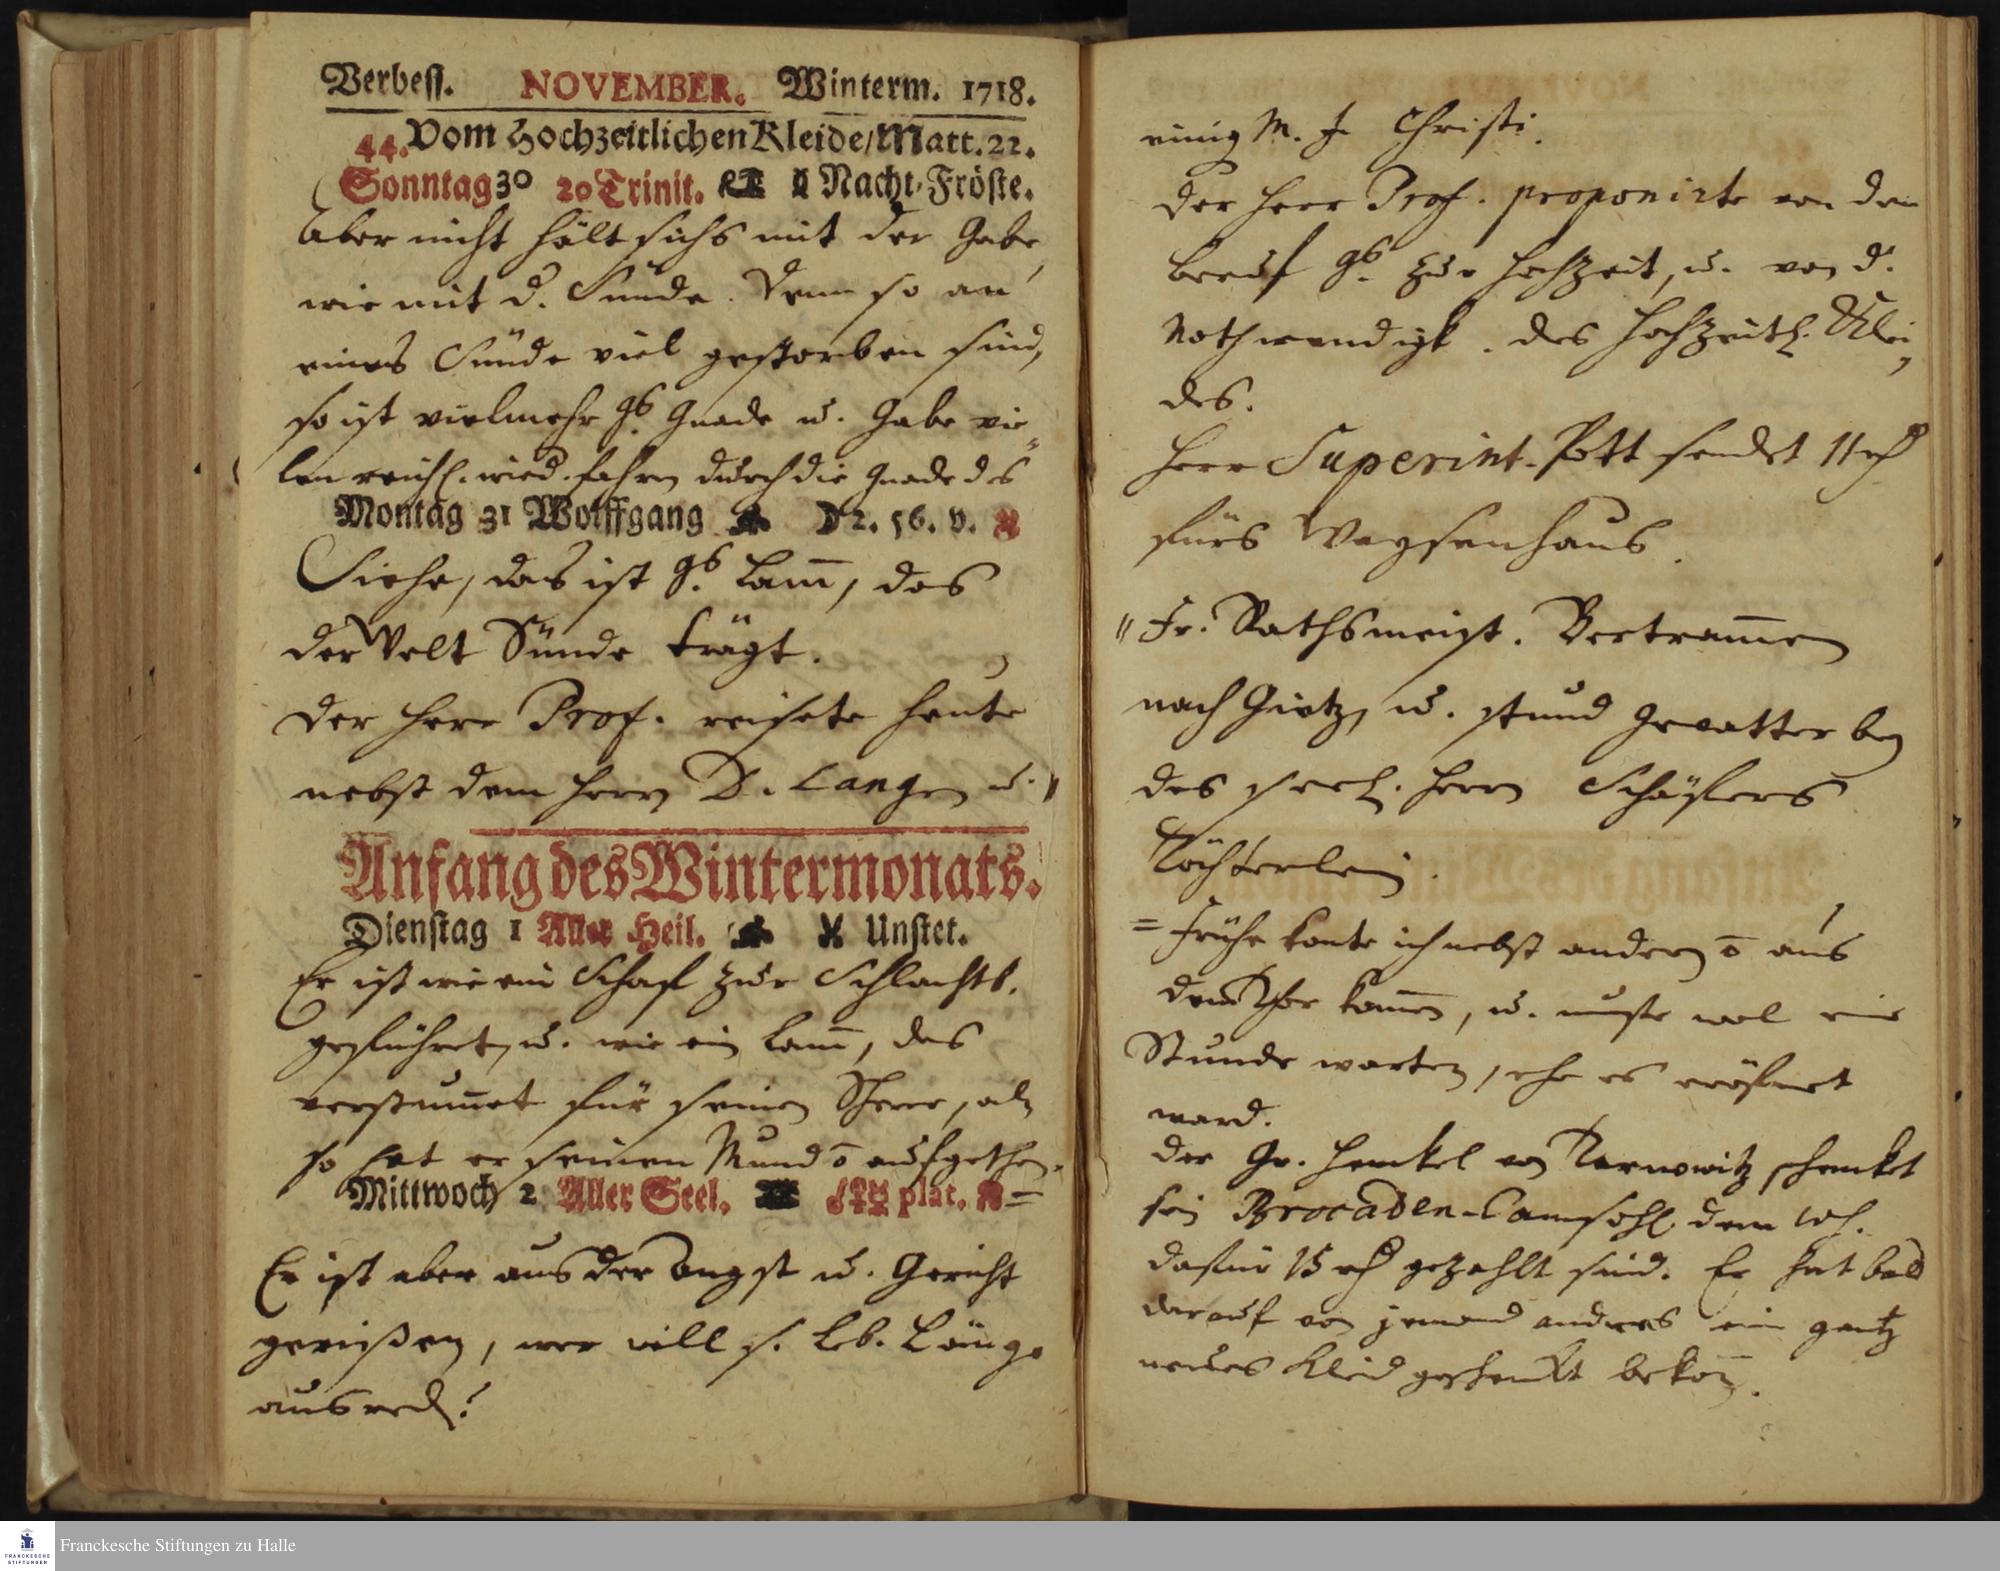 Verbess. NOVEMBER. Winterm. 1718.
44. Vom Hochzeitlichen Kleide/Matt. 22.
Sonntag 30 20 Trinit. Nacht-Fröste.
Aber nicht hält sichs mit der Gabe,
wie mit d. Sünde. Denn so an
eines Sünde viel gestorben sind,
so ist vielmehr Gs. Gnade u. Gabe vie-
len reichl. wied.fahren durch die Gnade des
Montag 31 Wolffgang 2. 56. v.
Siehe, das ist Gs. Lam̄, das
der Welt Sünde trägt.
Der Herr Prof. reisete heute
nebst dem Herrn D. Langen u. "
Anfang des Wintermonats.
Dienstag 1 Aller Heil. Unstet.
Er ist wie ein Schaf zur Schlachtb.
geführet, u. wie ein Lam̄, das
verstum̄et für seinen Scherer, al-
so hat er seinen Mund o aufgethan.
Mittwoch 2 Aller Seel. plat. =
Er ist aber aus der Angst u. Gericht
gerißen, wer will s. Leb. Länge
ausred.?
einig M. J. Christi.
Der Herr Prof. proponirte von dem
Beruf Gs. zur Hochzeit, u. von d.
Nothwendigk. des hochzeitl. Klei-
des.
Herr Superint. Pott sendet 11 rh
fürs Waysenhaus.
" Fr. Rathsmeist. Bertram̄en
nach Gietz, u. stund Gevatter bey
des seel. Herrn Schäfers
Töchterlein.
= Frühe konte ich nebst andern o aus
dem Thor kom̄en, u. muste wol eine
Stunde warten, ehe es eröfnet
ward.
Der Gr. Henckel von Tarnowitz schencket
sein Brocaden-Camsohl dem Wh.
dafür 15 rh gezahlt sind. Er hat bald
darauf von jemand anders ein gantz
neues Kleid geschenckt bekom̄.
Franckesche Stiftungen zu Halle
FRANCKESCHE
STIFTUNGEN